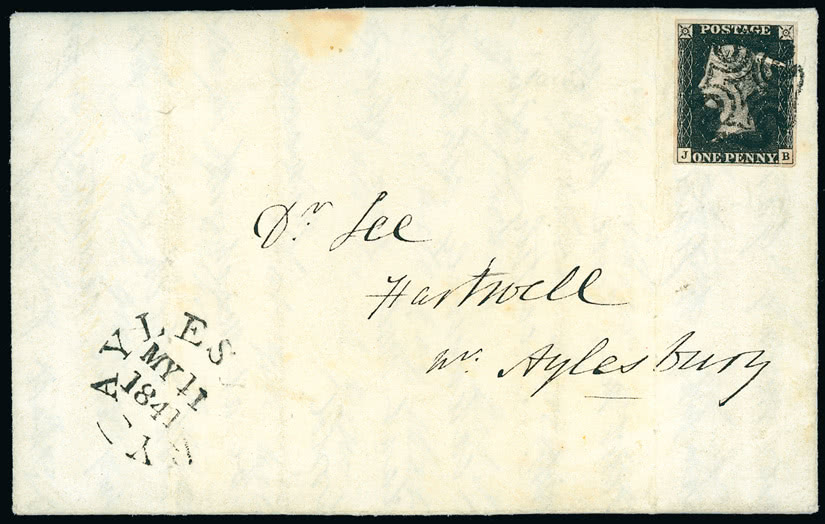 POSTAGE
J ONE PENNY B
Dr. Lee
Hartwell
nr. Aylesbury
AYLES
MY 11
1841